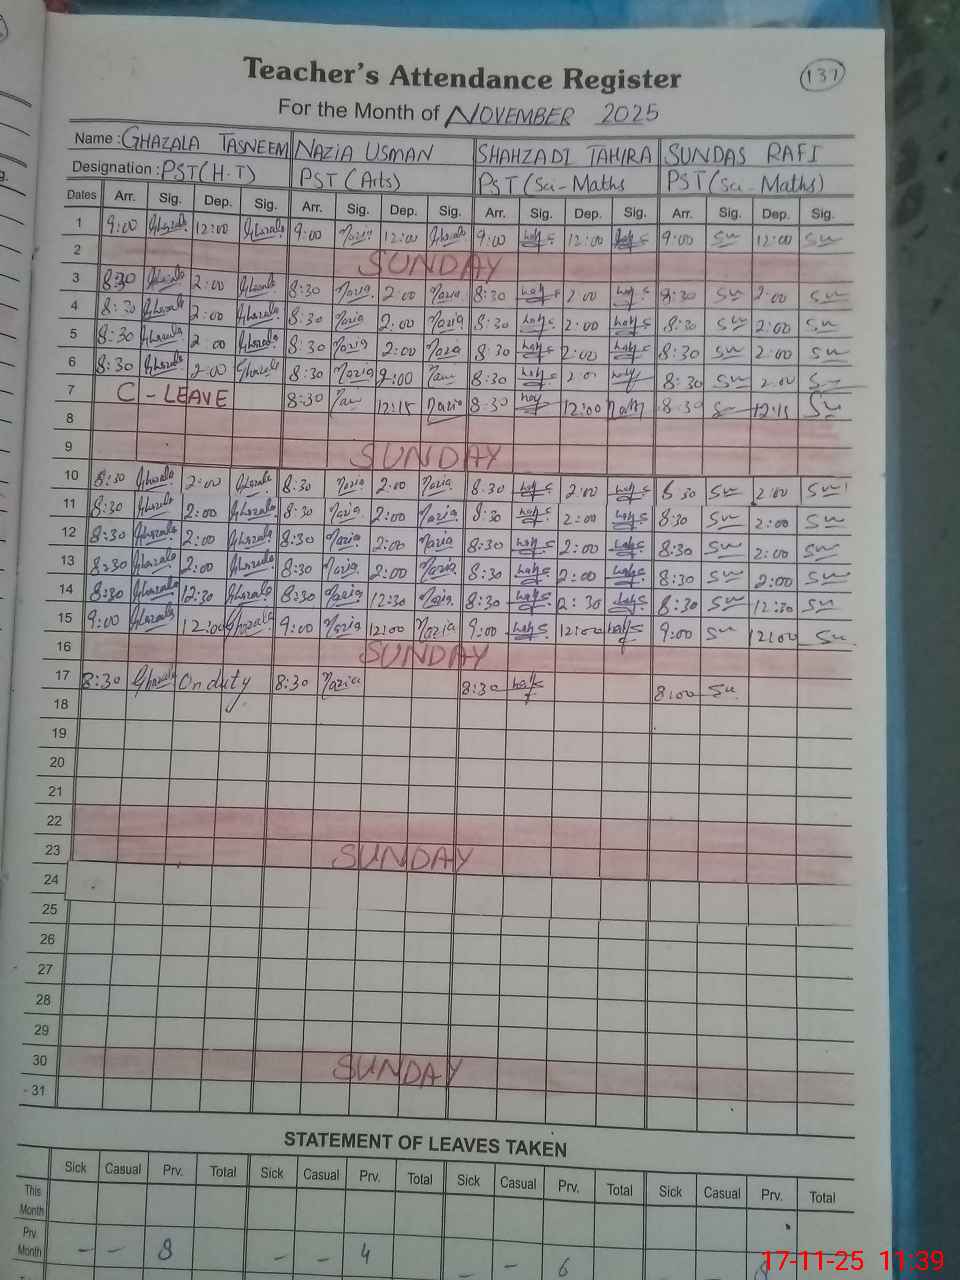 137
Teacher's Attendance Register
For the Month of NOVEMBER 2025
Name : GHAZALA TASNEEM NAZIA USMAN SHAHZADI TAHIRA SUNDAS RAFI
Designation : PST(H.T) PST (Arts) PST (Sci-Maths PST (Sci-Maths)
Dates Arr. Sig. Dep. Sig. Arr. Sig. Dep. Sig. Arr. Sig. Dep. Sig. Arr. Sig. Dep. Sig.
1 9:00 Ghazala 12:00 Ghazala 9:00 Nazia 12:00 9:00 12:00 9:00 Su 12:00 Su
2 SUNDAY
3 8:30 Ghazala 2:00 Ghazala 8:30 Nazia 2:00 Nazia 8:30 2:00 8:30 Su 2:00 Su
4 8:30 Ghazala 2:00 Ghazala 8:30 Nazia 2:00 Nazia 8:30 2:00 8:30 Su 2:00 Su
5 8:30 Ghazala 2:00 Ghazala 8:30 Nazia 2:00 Nazia 8:30 2:00 8:30 Su 2:00 Su
6 8:30 Ghazala 2:00 Ghazala 8:30 Nazia 2:00 8:30 8:30 Su 2:00 Su
7 C-LEAVE 8:30 12:15 Nazia 8:30 12:00 8:30 Su
8
9 SUNDAY
10 8:30 Ghazala 2:00 Ghazala 8:30 Nazia 2:00 Nazia 8:30 2:00 8 30 Su 2:00 Su
11 8:30 Ghazala 2:00 Ghazala 8:30 Nazia 2:00 Nazia 8:30 2:00 8:30 Su 2:00 Su
12 8:30 Ghazala 2:00 Ghazala 8:30 Nazia 2:00 Nazia 8:30 2:00 8:30 Su 2:00 Su
13 8:30 Ghazala 2:00 Ghazala 8:30 Nazia 2:00 Nazia 8:30 2:00 8:30 Su 2:00 Su
14 8:30 Ghazala 12:30 Ghazala 8:30 Nazia 12:30 Nazia 8:30 8:30 Su 12:30 Su
15 9:00 Ghazala 12:00 Ghazala 9:00 Nazia 12:00 Nazia 9:00 12:00 9:00 Su 12:00 Su
16 SUNDAY
17 8:30 Ghazala On duty 8:30 Nazia 8:30 8:00 Su
18
19
20
21
22
23 SUNDAY
24
25
26
27
28
29
30 SUNDAY
31
STATEMENT OF LEAVES TAKEN
Sick Casual Prv. Total Sick Casual Prv. Total Sick Casual Prv. Total Sick Casual Prv. Total
This Month
Prv. Month - - 8 - - 4 - - 6
17-11-25 11:39